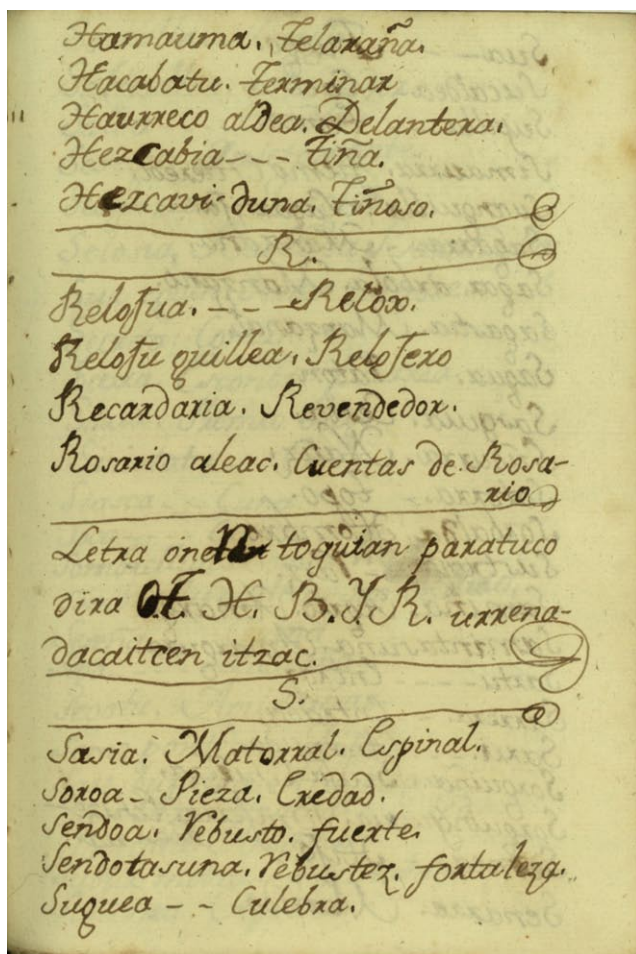 Hamauma. Telaraña.
Hacabatu. Terminar
Haurreco aldea. Delantera.
Hezcabia - - - Tiña.
Hezcavi-duna. Tiñoso.
R.
Relosua. - - - Relox.
Relosu guillea. Relosero
Recardaria. Revendedor.
Rosario aleac. Cuentas de Rosa-
rio
Letra one toguian paratuco
dira H. B. Y R. urrena-
dacaitcen itzac.
S.
Sasia. Matorral. Espinal.
Soroa - Pieza. Eredad.
Sendoa. Rebusto. fuerte.
Sendotasuna. Rebustez. fortaleza.
Suguea - - Culebra.